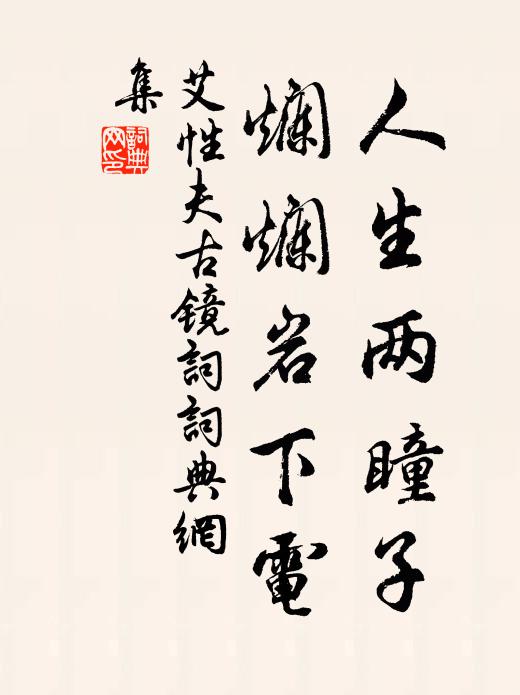 人生两瞳子
爛爛岩下電
艾性夫古鏡詞詞典網
集
詞典
网印